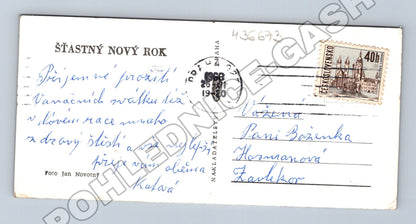 436673
ŠŤASTNÝ NOVÝ ROK
Příjemné prožití
Vánočních svátků též
v Novém roce mnoho
zdraví štěstí a vše nejlepší
přeje vám občma
Foto Jan Novotný
NAKLADATELSTVÍ
PRAHA
1968
ČESKOSLOVENSKO
40h
Vážená
Paní Boženka
Hosmanová
Zavlekov
POHLEDNICE-GASH